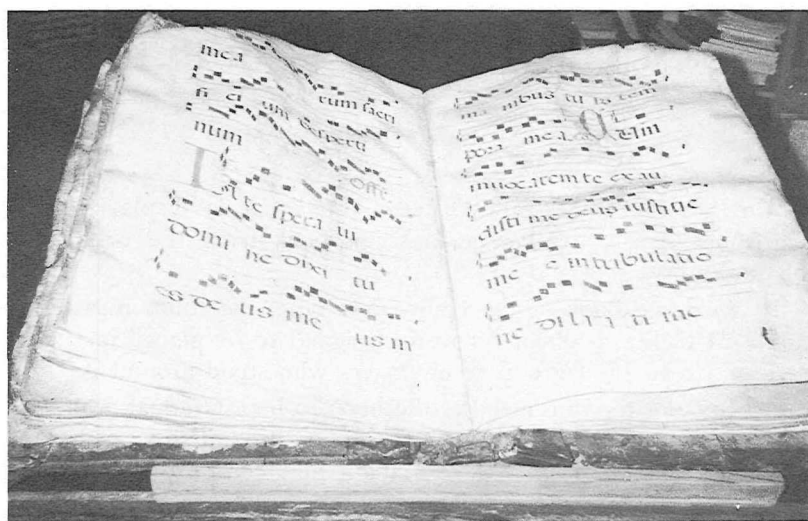 mea rum sacri
fi ci um vesperti
num Offe.
In te spera ui
domi ne dixi tu
es de us me us in
ma nibus tu is tem
pora mea. Cum
inuocarem te exau
disti me deus iustitie
me e in tribulatio
ne dila ta ti me